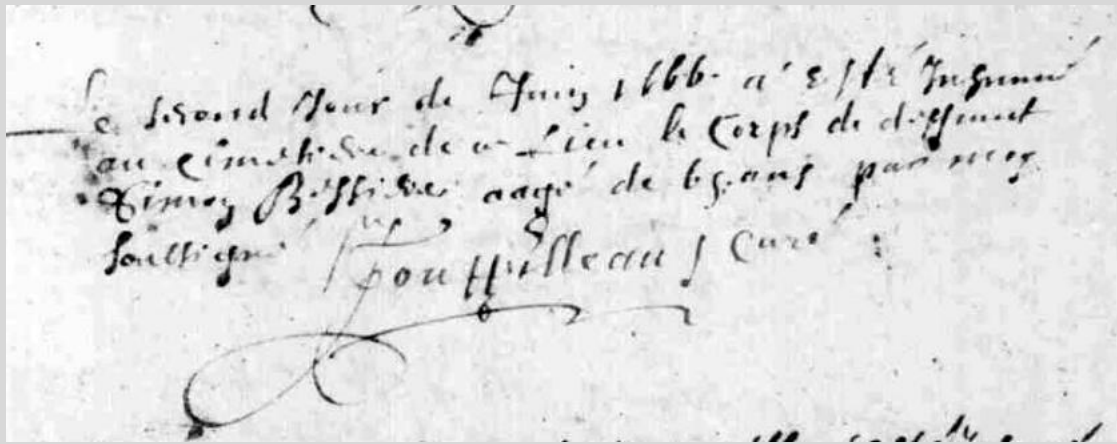 Le second Jour de Juing 1666. a esté Inhumé
au Cimetiere de ce Lieu le Corps de deffunct
Simon Bessiere aagé de ans par moy
soubsigné Curé